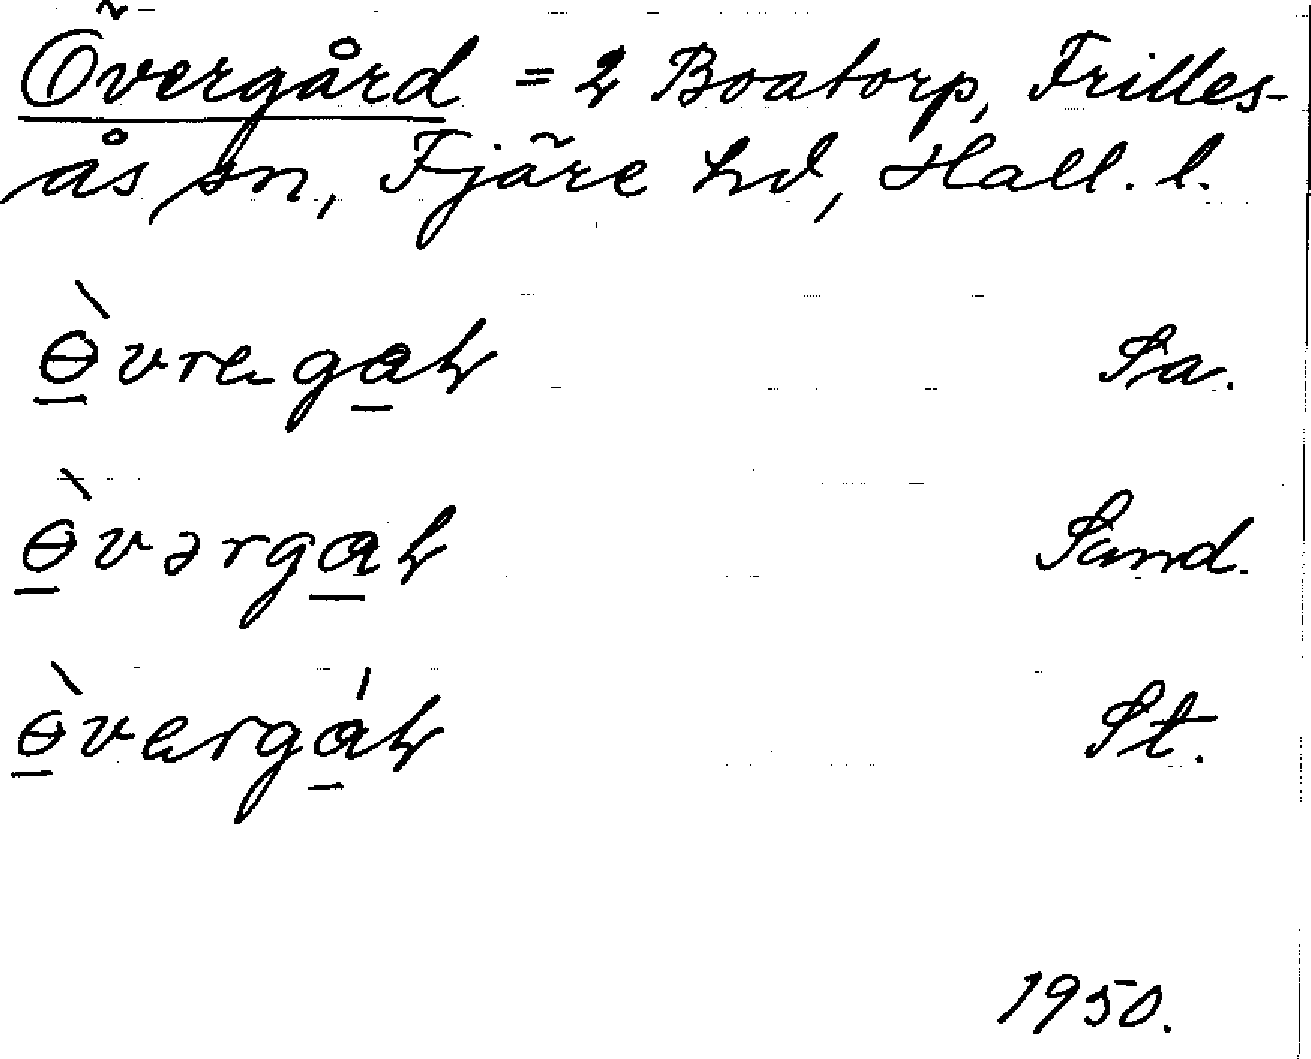 Övergård = 2 Boatorp, Frilles-
ås sn, Fjäre hd, Hall. l.
ɵ̲̀vrega̲ꞎ Sa.
ɵ̲̀vərga̲ꞎ Sand.
ɵ̲̀vergá̲ꞎ St.
1950.